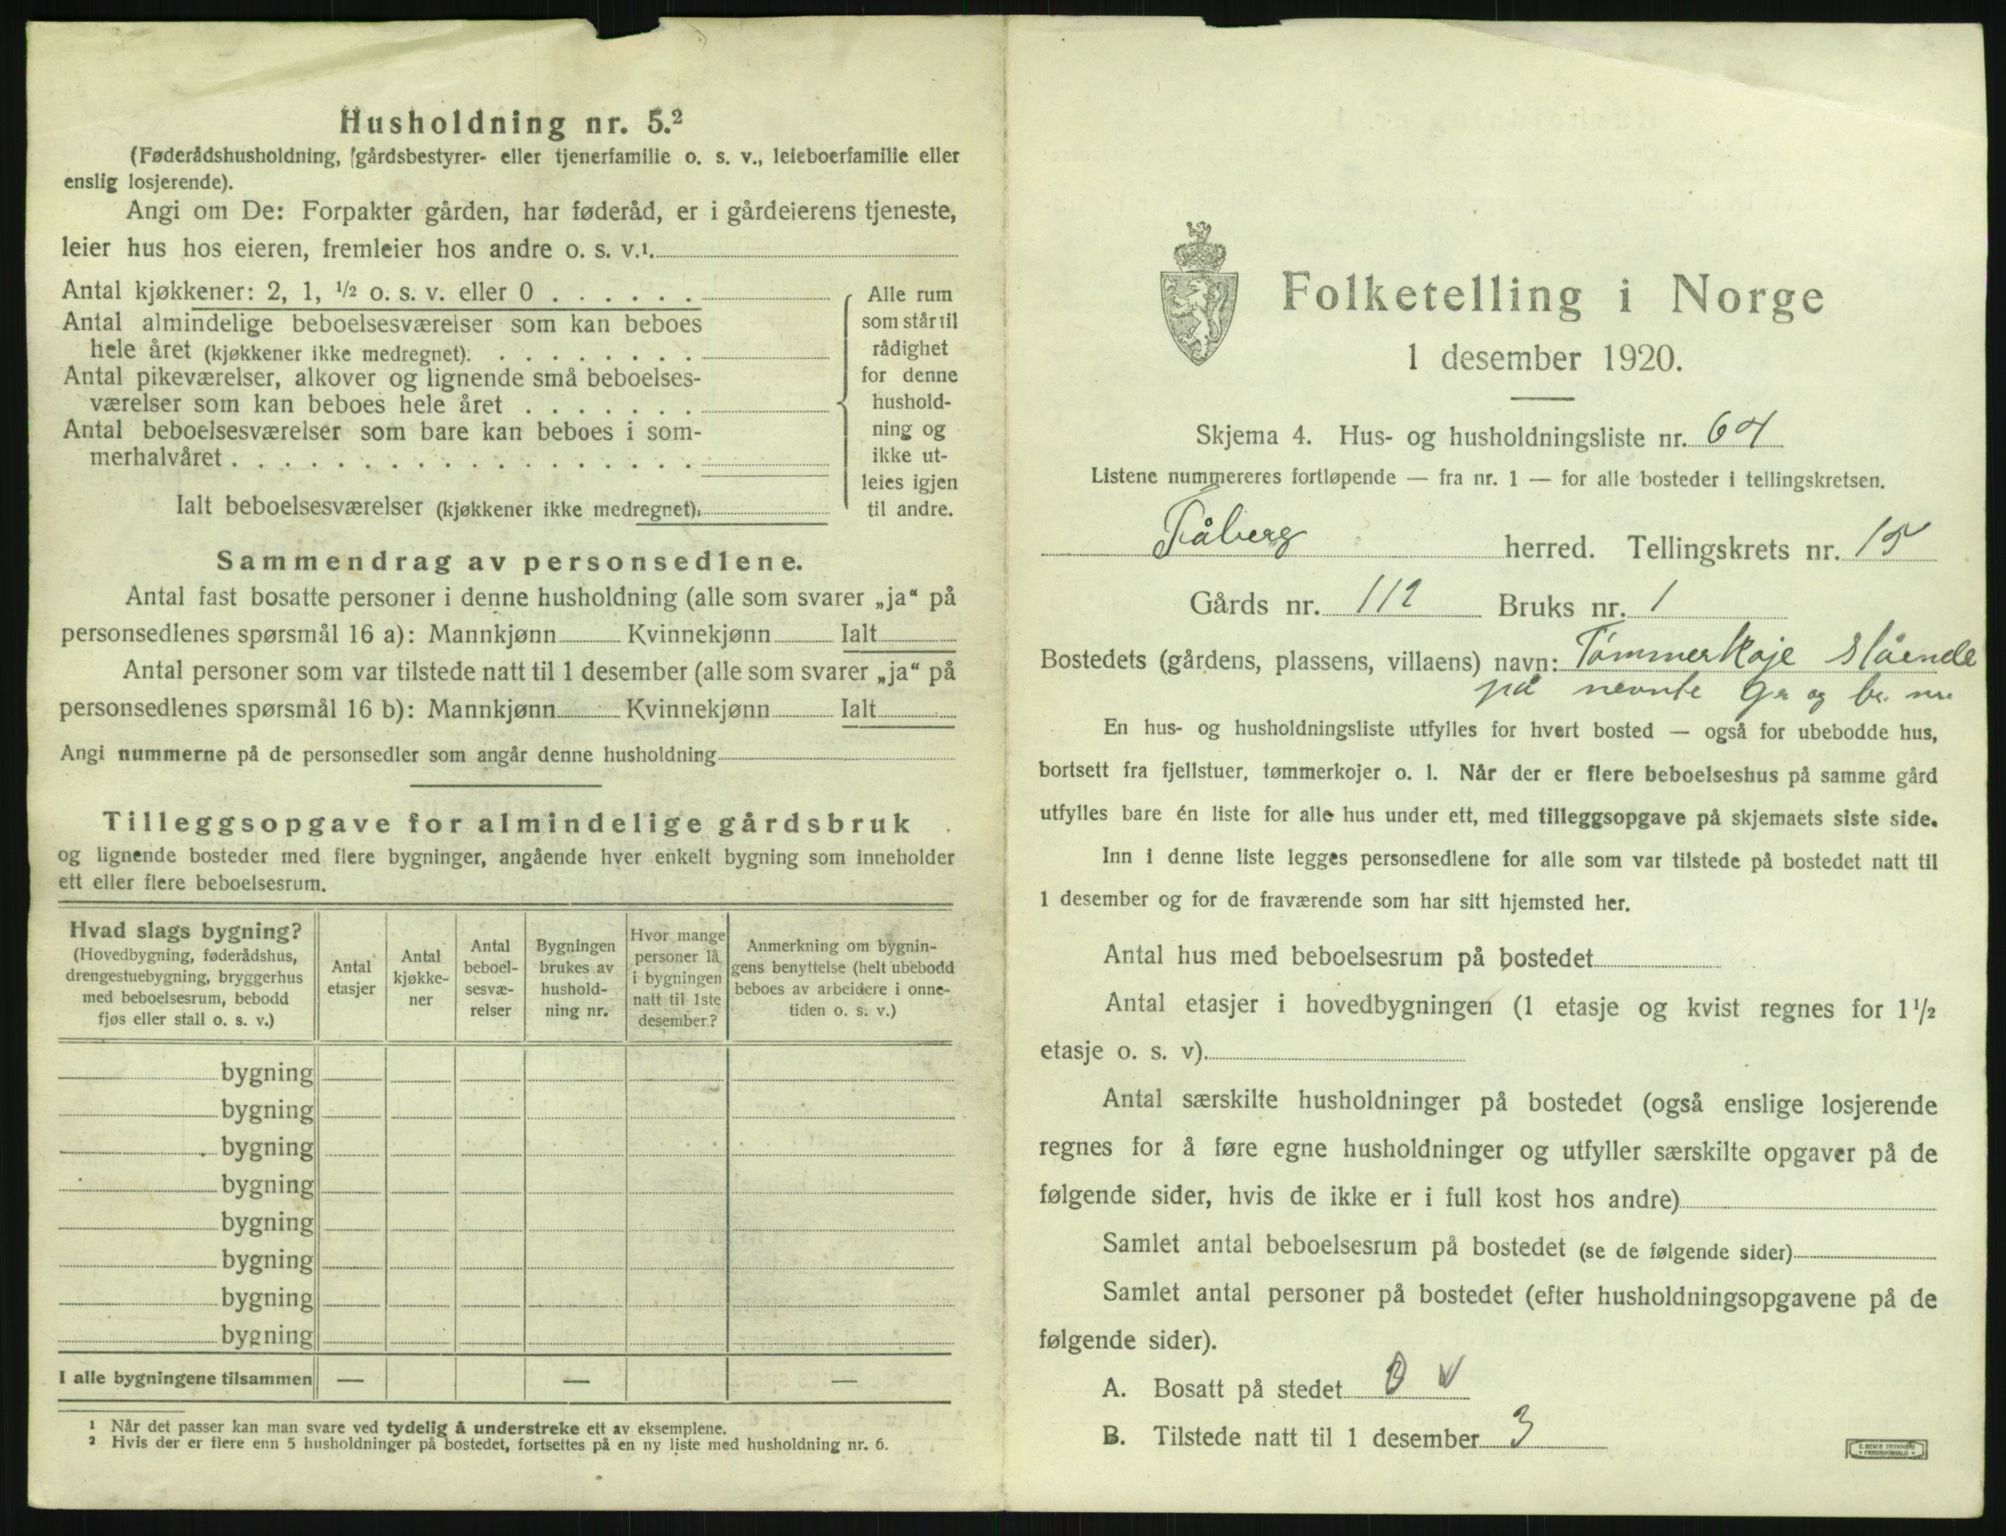 Husholdning nr. 5.²
(Føderådshusholdning, gårdsbestyrer- eller tjenerfamilie o. s. v., leieboerfamilie eller
enslig losjerende).
Angi om De: Forpakter gården, har føderåd, er i gårdeierens tjeneste,
leier hus hos eieren, fremleier hos andre o. s. v.¹
Antal kjøkkener: 2, 1, ½ o. s. v. eller 0 . . . . . .
Antal almindelige beboelsesværelser som kan beboes
hele året (kjøkkener ikke medregnet). . . . . . . . .
Antal pikeværelser, alkover og lignende små beboelses-
værelser som kan beboes hele året . . . . . . .
Antal beboelsesværelser som bare kan beboes i som-
merhalvåret . . . . . . . . . . . . . . . . . .
Ialt beboelsesværelser (kjøkkener ikke medregnet).
Alle rum
som står til
rådighet
for denne
hushold-
ning og
ikke ut-
leies igjen
til andre.
Sammendrag av personsedlene.
Antal fast bosatte personer i denne husholdning (alle som svarer „ja“ på
personsedlenes spørsmål 16 a): Mannkjønn Kvinnekjønn Ialt
Antal personer som var tilstede natt til 1 desember (alle som svarer „ja“ på
personsedlenes spørsmål 16 b): Mannkjønn Kvinnekjønn Ialt
Angi nummerne på de personsedler som angår denne husholdning
Tilleggsopgave for almindelige gårdsbruk
og lignende bosteder med flere bygninger, angående hver enkelt bygning som inneholder
ett eller flere beboelsesrum.
Hvad slags bygning?
(Hovedbygning, føderådshus,
drengestuebygning, bryggerhus
med beboelsesrum, bebodd
fjøs eller stall o. s. v.)
Antal
etasjer
Antal
kjøkke-
ner
Antal
beboel-
sesvæ-
relser
Bygningen
brukes av
hushold-
ning nr.
Hvor mange
personer lå
i bygningen
natt til 1ste
desember?
Anmerkning om bygnin-
gens benyttelse (helt ubebodd
beboes av arbeidere i onne-
tiden o. s. v.)
bygning
bygning
bygning
bygning
bygning
bygning
bygning
bygning
I alle bygningene tilsammen — — —
¹ Når det passer kan man svare ved tydelig å understreke ett av eksemplene.
² Hvis der er flere enn 5 husholdninger på bostedet, fortsettes på en ny liste med husholdning nr. 6.
Folketelling i Norge
1 desember 1920.
Skjema 4. Hus- og husholdningsliste nr. 64
Listene nummereres fortløpende — fra nr. 1 — for alle bosteder i tellingskretsen.
Fåberg herred. Tellingskrets nr. 15
Gårds nr. 112 Bruks nr. 1
Bostedets (gårdens, plassens, villaens) navn: Tømmerkoje stående
på nevnte Gr og br. nr.
En hus- og husholdningsliste utfylles for hvert bosted — også for ubebodde hus,
bortsett fra fjellstuer, tømmerkojer o. l. Når der er flere beboelseshus på samme gård
utfylles bare én liste for alle hus under ett, med tilleggsopgave på skjemaets siste side.
Inn i denne liste legges personsedlene for alle som var tilstede på bostedet natt til
1 desember og for de fraværende som har sitt hjemsted her.
Antal hus med beboelsesrum på bostedet
Antal etasjer i hovedbygningen (1 etasje og kvist regnes for 1½
etasje o. s. v).
Antal særskilte husholdninger på bostedet (også enslige losjerende
regnes for å føre egne husholdninger og utfyller særskilte opgaver på de
følgende sider, hvis de ikke er i full kost hos andre)
Samlet antal beboelsesrum på bostedet (se de følgende sider)
Samlet antal personer på bostedet (efter husholdningsopgavene på de
følgende sider).
A. Bosatt på stedet 0 v
B. Tilstede natt til 1 desember 3